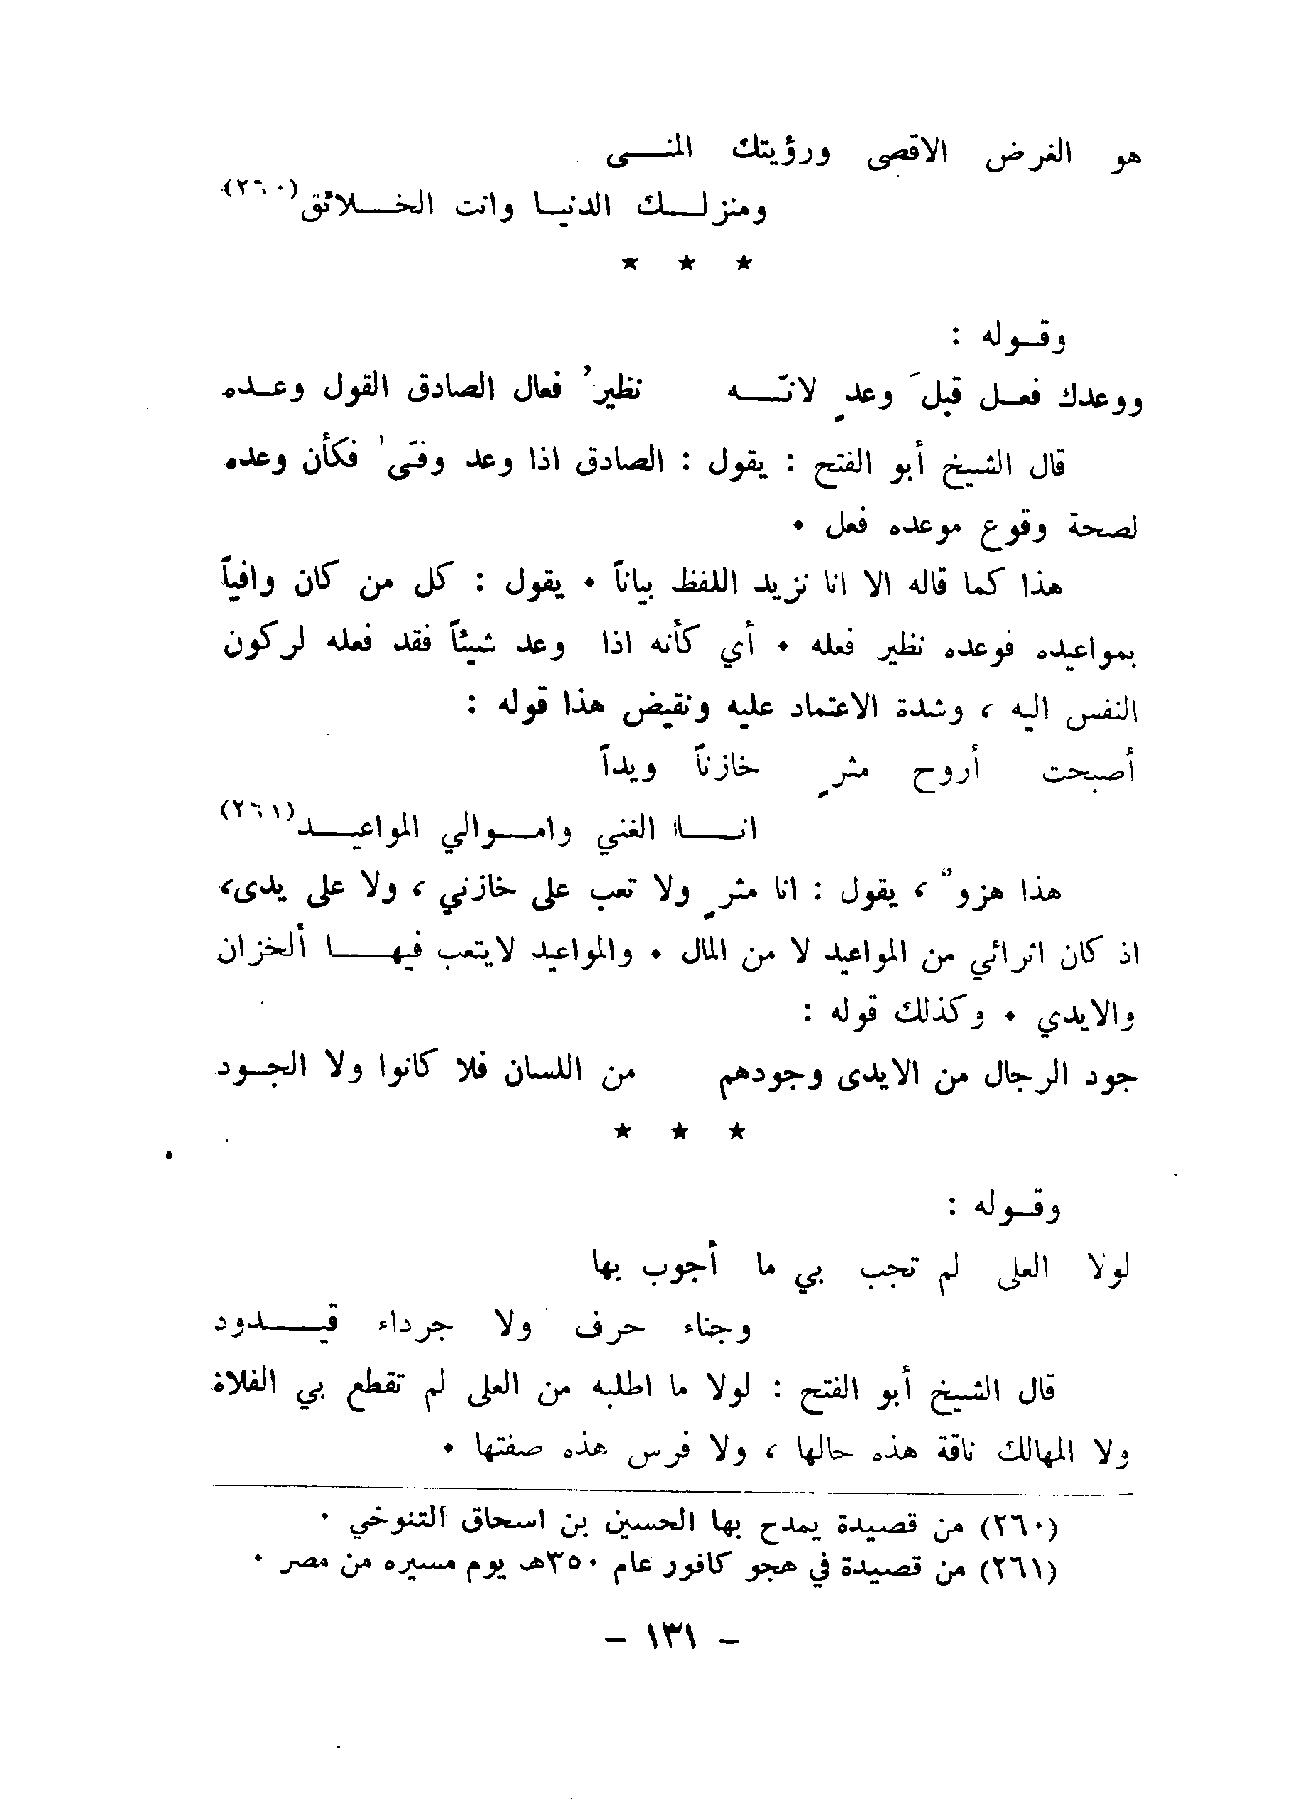 هو الغرض الاقصى ورؤيتك المنى
ومنزلك الدنيا وانت الخلائق(٢٦٠)
★ ★ ★
وقوله :
ووعدك فعل قبلَ وعدٍ لانّه نظيرُ فعال الصادق القول وعده
قال الشيخ أبو الفتح : يقول : الصادق اذا وعد وفّى فكأن وعده
لصحة وقوع موعده فعل .
هذا كما قاله الا انا نزيد اللفظ بياناً . يقول : كل من كان وافياً
بمواعيده فوعده نظير فعله . أي كأنه اذا وعد شيئاً فقد فعله لركون
النفس اليه ، وشدة الاعتماد عليه ونقيض هذا قوله :
أصبحت أروح مثرٍ خازناً ويداً
انا الغني واموالي المواعيد(٢٦١)
هذا هزوٌ ، يقول : انا مثرٍ ولا تعب على خازني ، ولا على يدى،
اذ كان اثرائي من المواعيد لا من المال . والمواعيد لايتعب فيها ألخزان
والايدي . وكذلك قوله :
جود الرجال من الايدى وجودهم من اللسان فلا كانوا ولا الجود
★ ★ ★
وقوله :
لولا العلى لم تجب بي ما أجوب بها
وجناء حرف ولا جرداء قيدود
قال الشيخ أبو الفتح : لولا ما اطلبه من العلى لم تقطع بي الفلاة
ولا المهالك ناقة هذه حالها ، ولا فرس هذه صفتها .
(٢٦٠) من قصيدة يمدح بها الحسين بن اسحاق التنوخي .
(٢٦١) من قصيدة في هجو كافور عام ٣٥٠هـ يوم مسيره من مصر .
– ١٣١ –